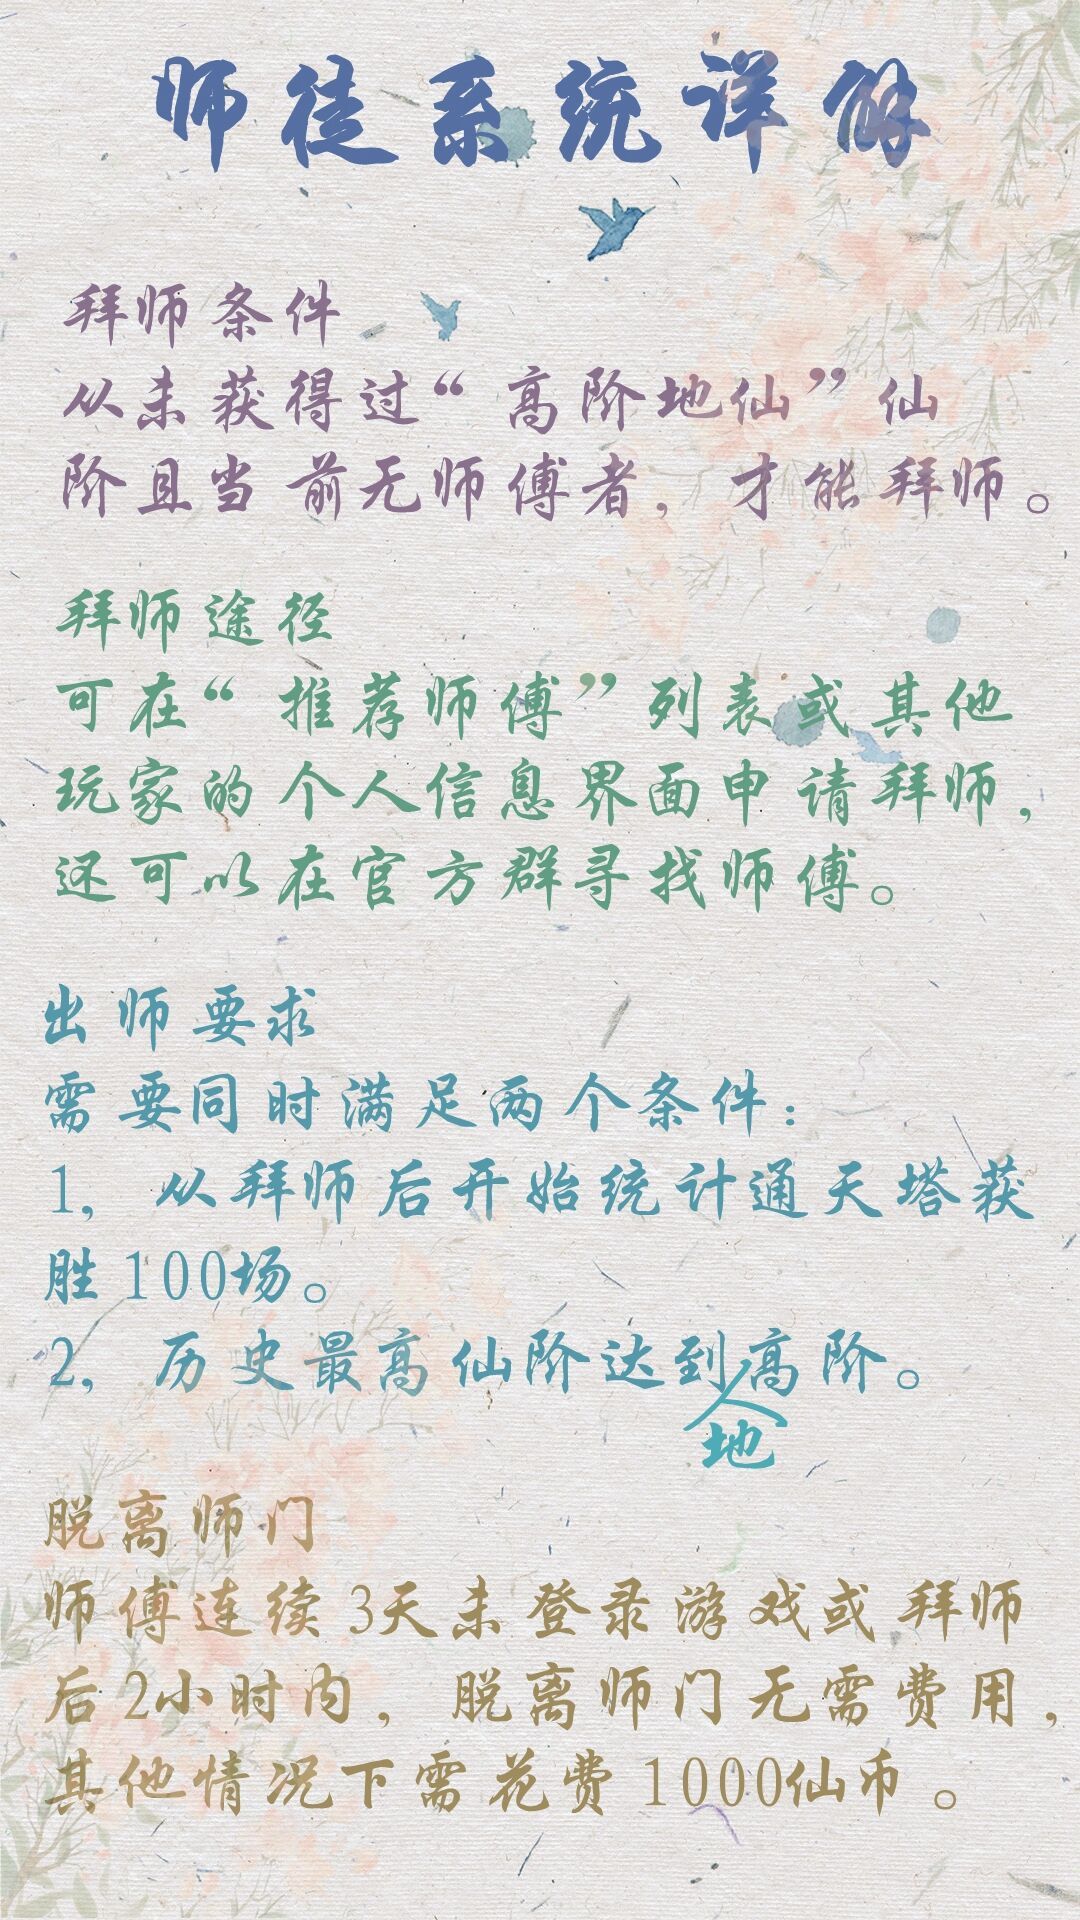 师徒系统详解
拜师条件
从未获得过“高阶地仙”仙
阶且当前无师傅者，才能拜师。
拜师途径
可在“推荐师傅”列表或其他
玩家的个人信息界面申请拜师，
还可以在官方群寻找师傅。
出师要求
需要同时满足两个条件：
1，从拜师后开始统计通天塔获
胜100场。
2，历史最高仙阶达到高阶。
地
脱离师门
师傅连续3天未登录游戏或拜师
后2小时内，脱离师门无需费用，
其他情况下需花费1000仙币。